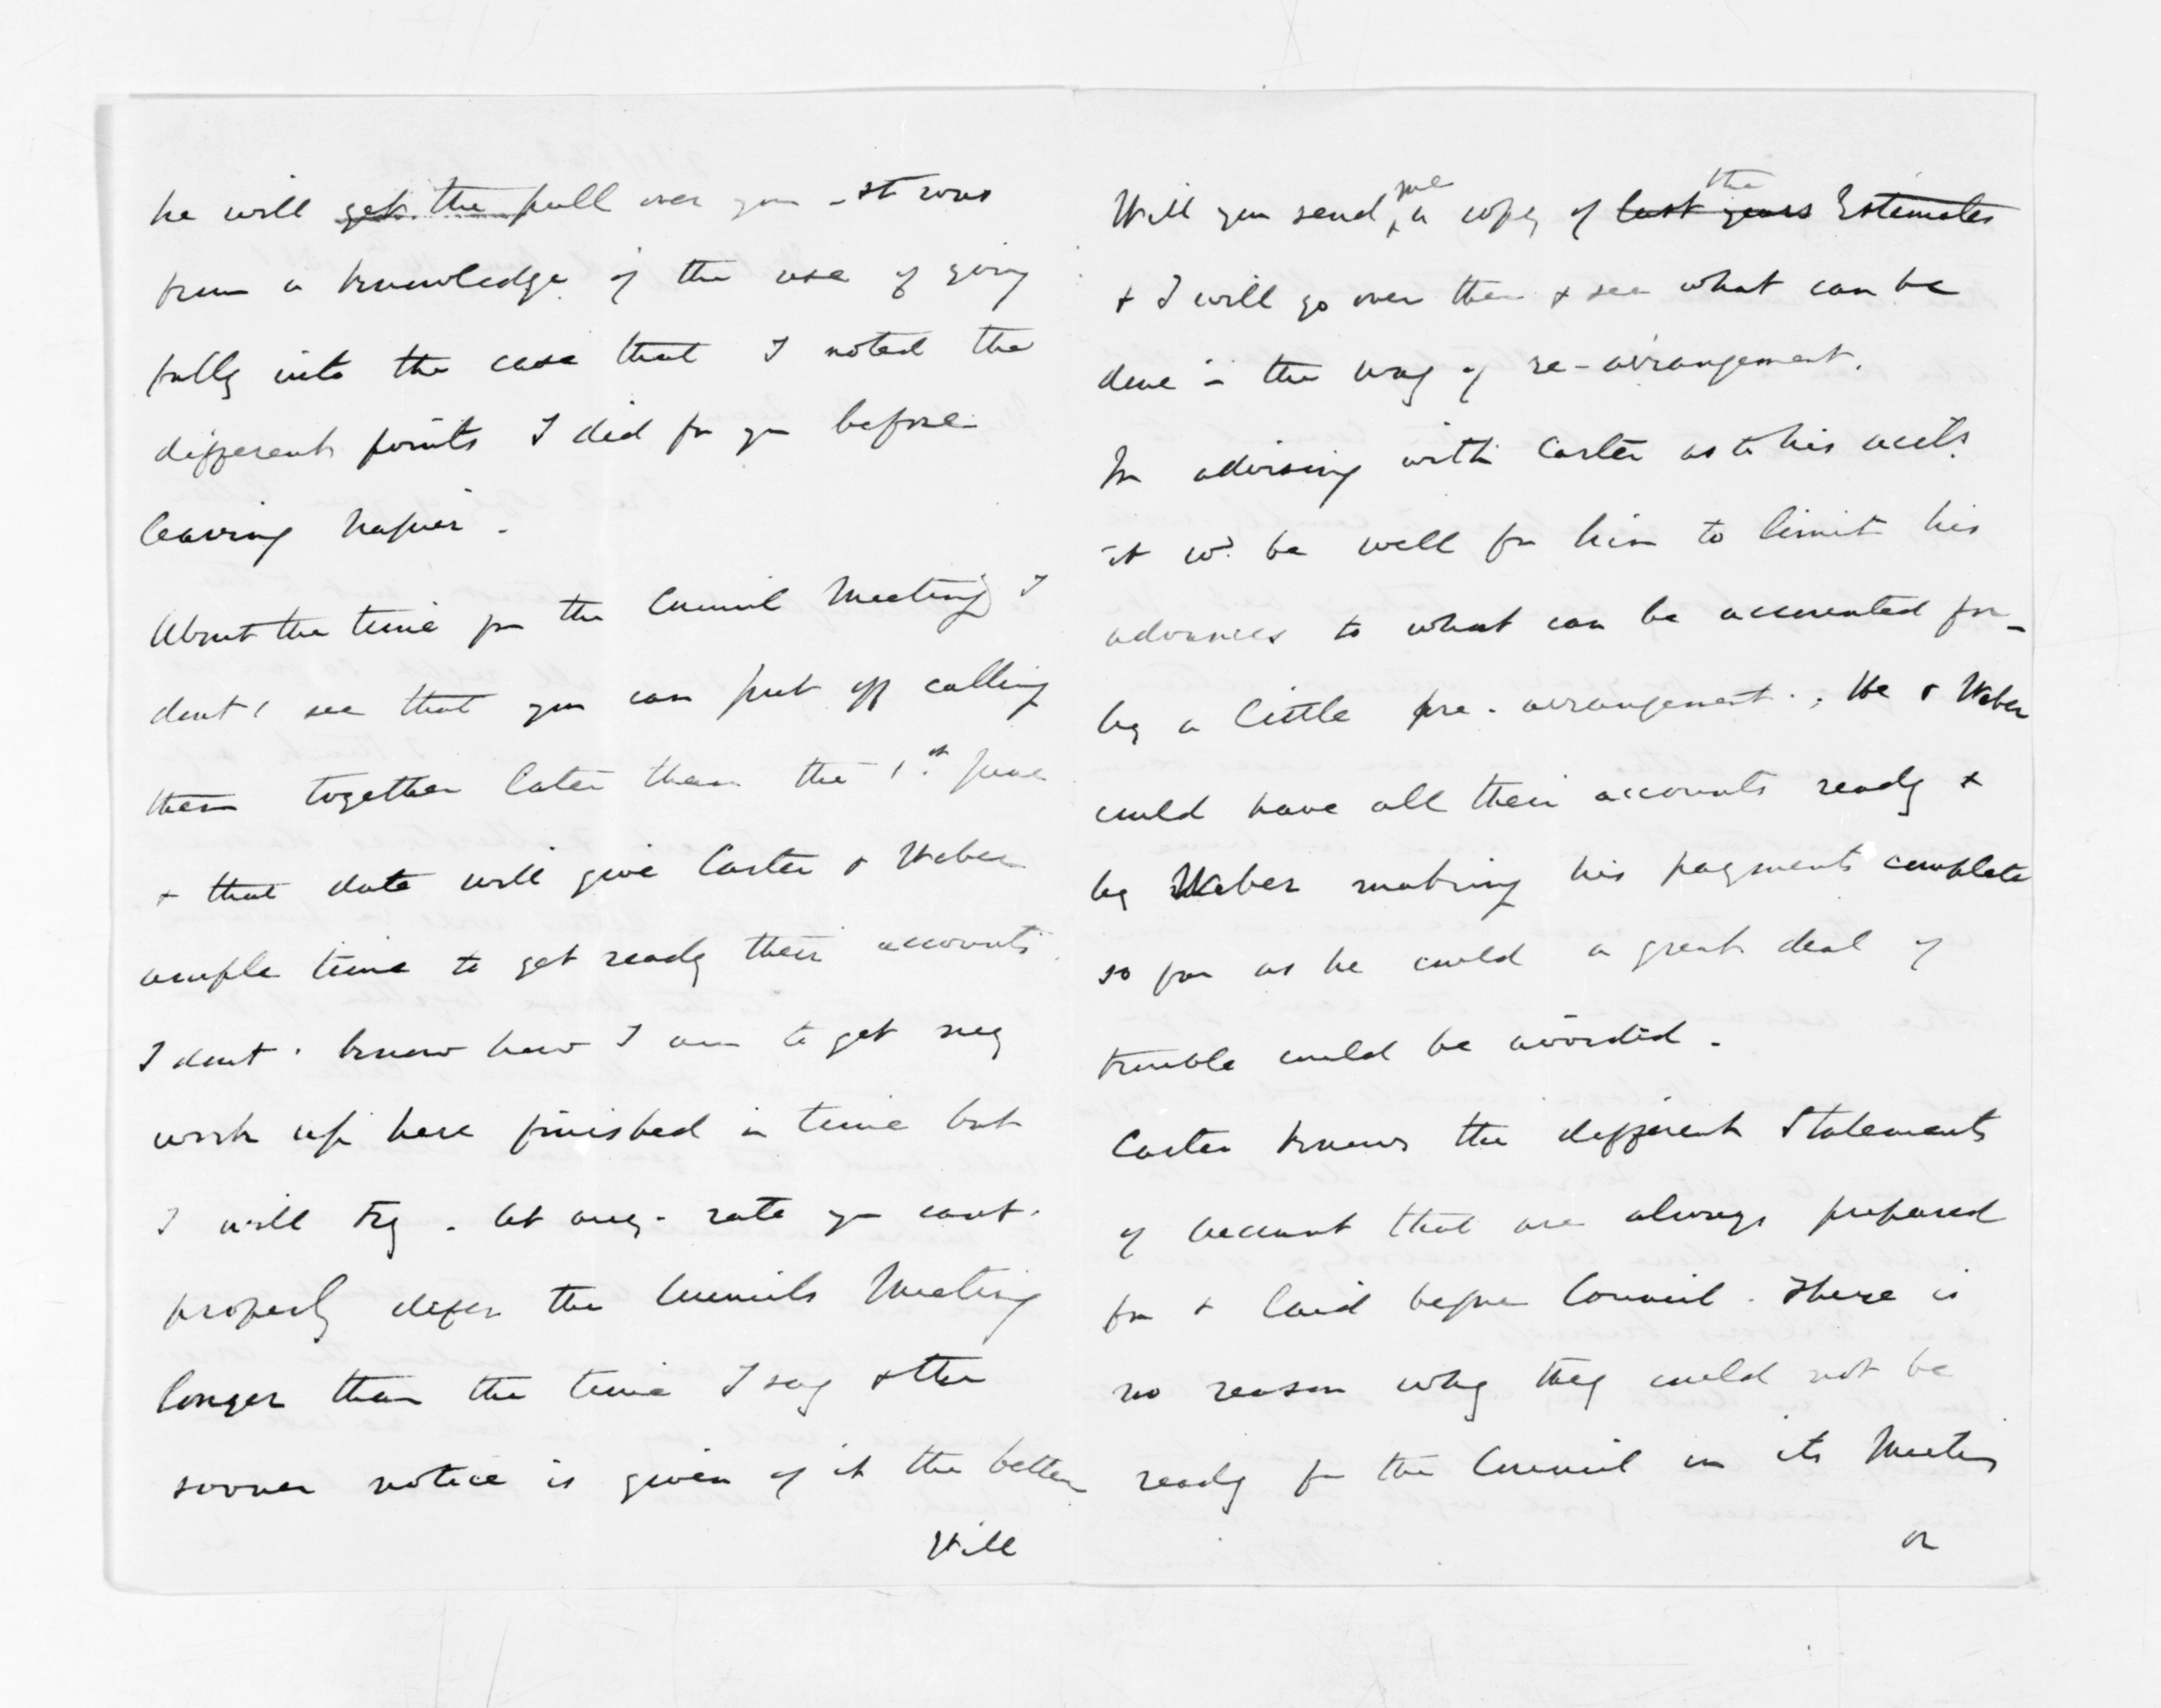 he will get the pull over you - It was
from a knowledge of the use of going
fully into the case that I noted the
different points I did for you before
leaving Napier -
About the time for the Council Meeting I
dont see that you can put off calling
them together later than the 1st June
+ that date will give Carter & Weber
ample time to get ready their accounts.
I dont know how I am to get my
work up here finished in time but
I will try - At any rate you cant
properly defer the Councils Meeting
longer than the time I say & the
sooner notice is given of it the better
Will
Will you send me a copy of last years the Estimates
+ I will go over them + see what can be
done in the way of re-arrangement.
In advising with Carter as to his accts.
it wd. be well for him to limit his
advances to what can be accounted for -
by a little pre-arrangement. He & Weber
could have all their accounts ready +
by Weber making his payments complete
so far as he could a great deal of
trouble could be avoided -
Carter knows the different Statements
of Account that are always prepared
for + laid before Council. There is
no reason why they could not be
ready for the Council on its Meeting
or